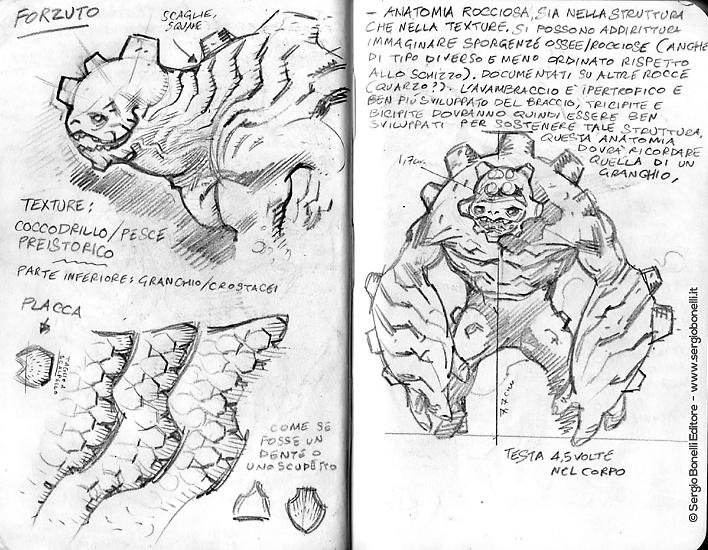 FORZUTO
SCAGLIE,
SQUAME
TEXTURE:
COCCODRILLO/PESCE
PREISTORICO
PARTE INFERIORE: GRANCHIO/CROSTACEI
PLACCA
COME SE
FOSSE UN
DENTE O
UNO SCUDETTO
- ANATOMIA ROCCIOSA, SIA NELLA STRUTTURA
CHE NELLA TEXTURE. SI POSSONO ADDIRITTURA
IMMAGINARE SPORGENZE OSSEE/ROCCIOSE (ANCHE
DI TIPO DIVERSO E MENO ORDINATO RISPETTO
ALLO SCHIZZO). DOCUMENTATI SU ALTRE ROCCE
(QUARZO?). L'AVAMBRACCIO E' IPERTROFICO E
BEN PIÙ SVILUPPATO DEL BRACCIO, TRICIPITE E
BICIPITE DOVRANNO QUINDI ESSERE BEN
SVILUPPATI PER SOSTENERE TALE STRUTTURA,
QUESTA ANATOMIA
DOVRA' RICORDARE
QUELLA DI UN
GRANCHIO,
1,7cm.
7,7cm
TESTA 4,5 VOLTE
NEL CORPO
© Sergio Bonelli Editore - www.sergiobonelli.it